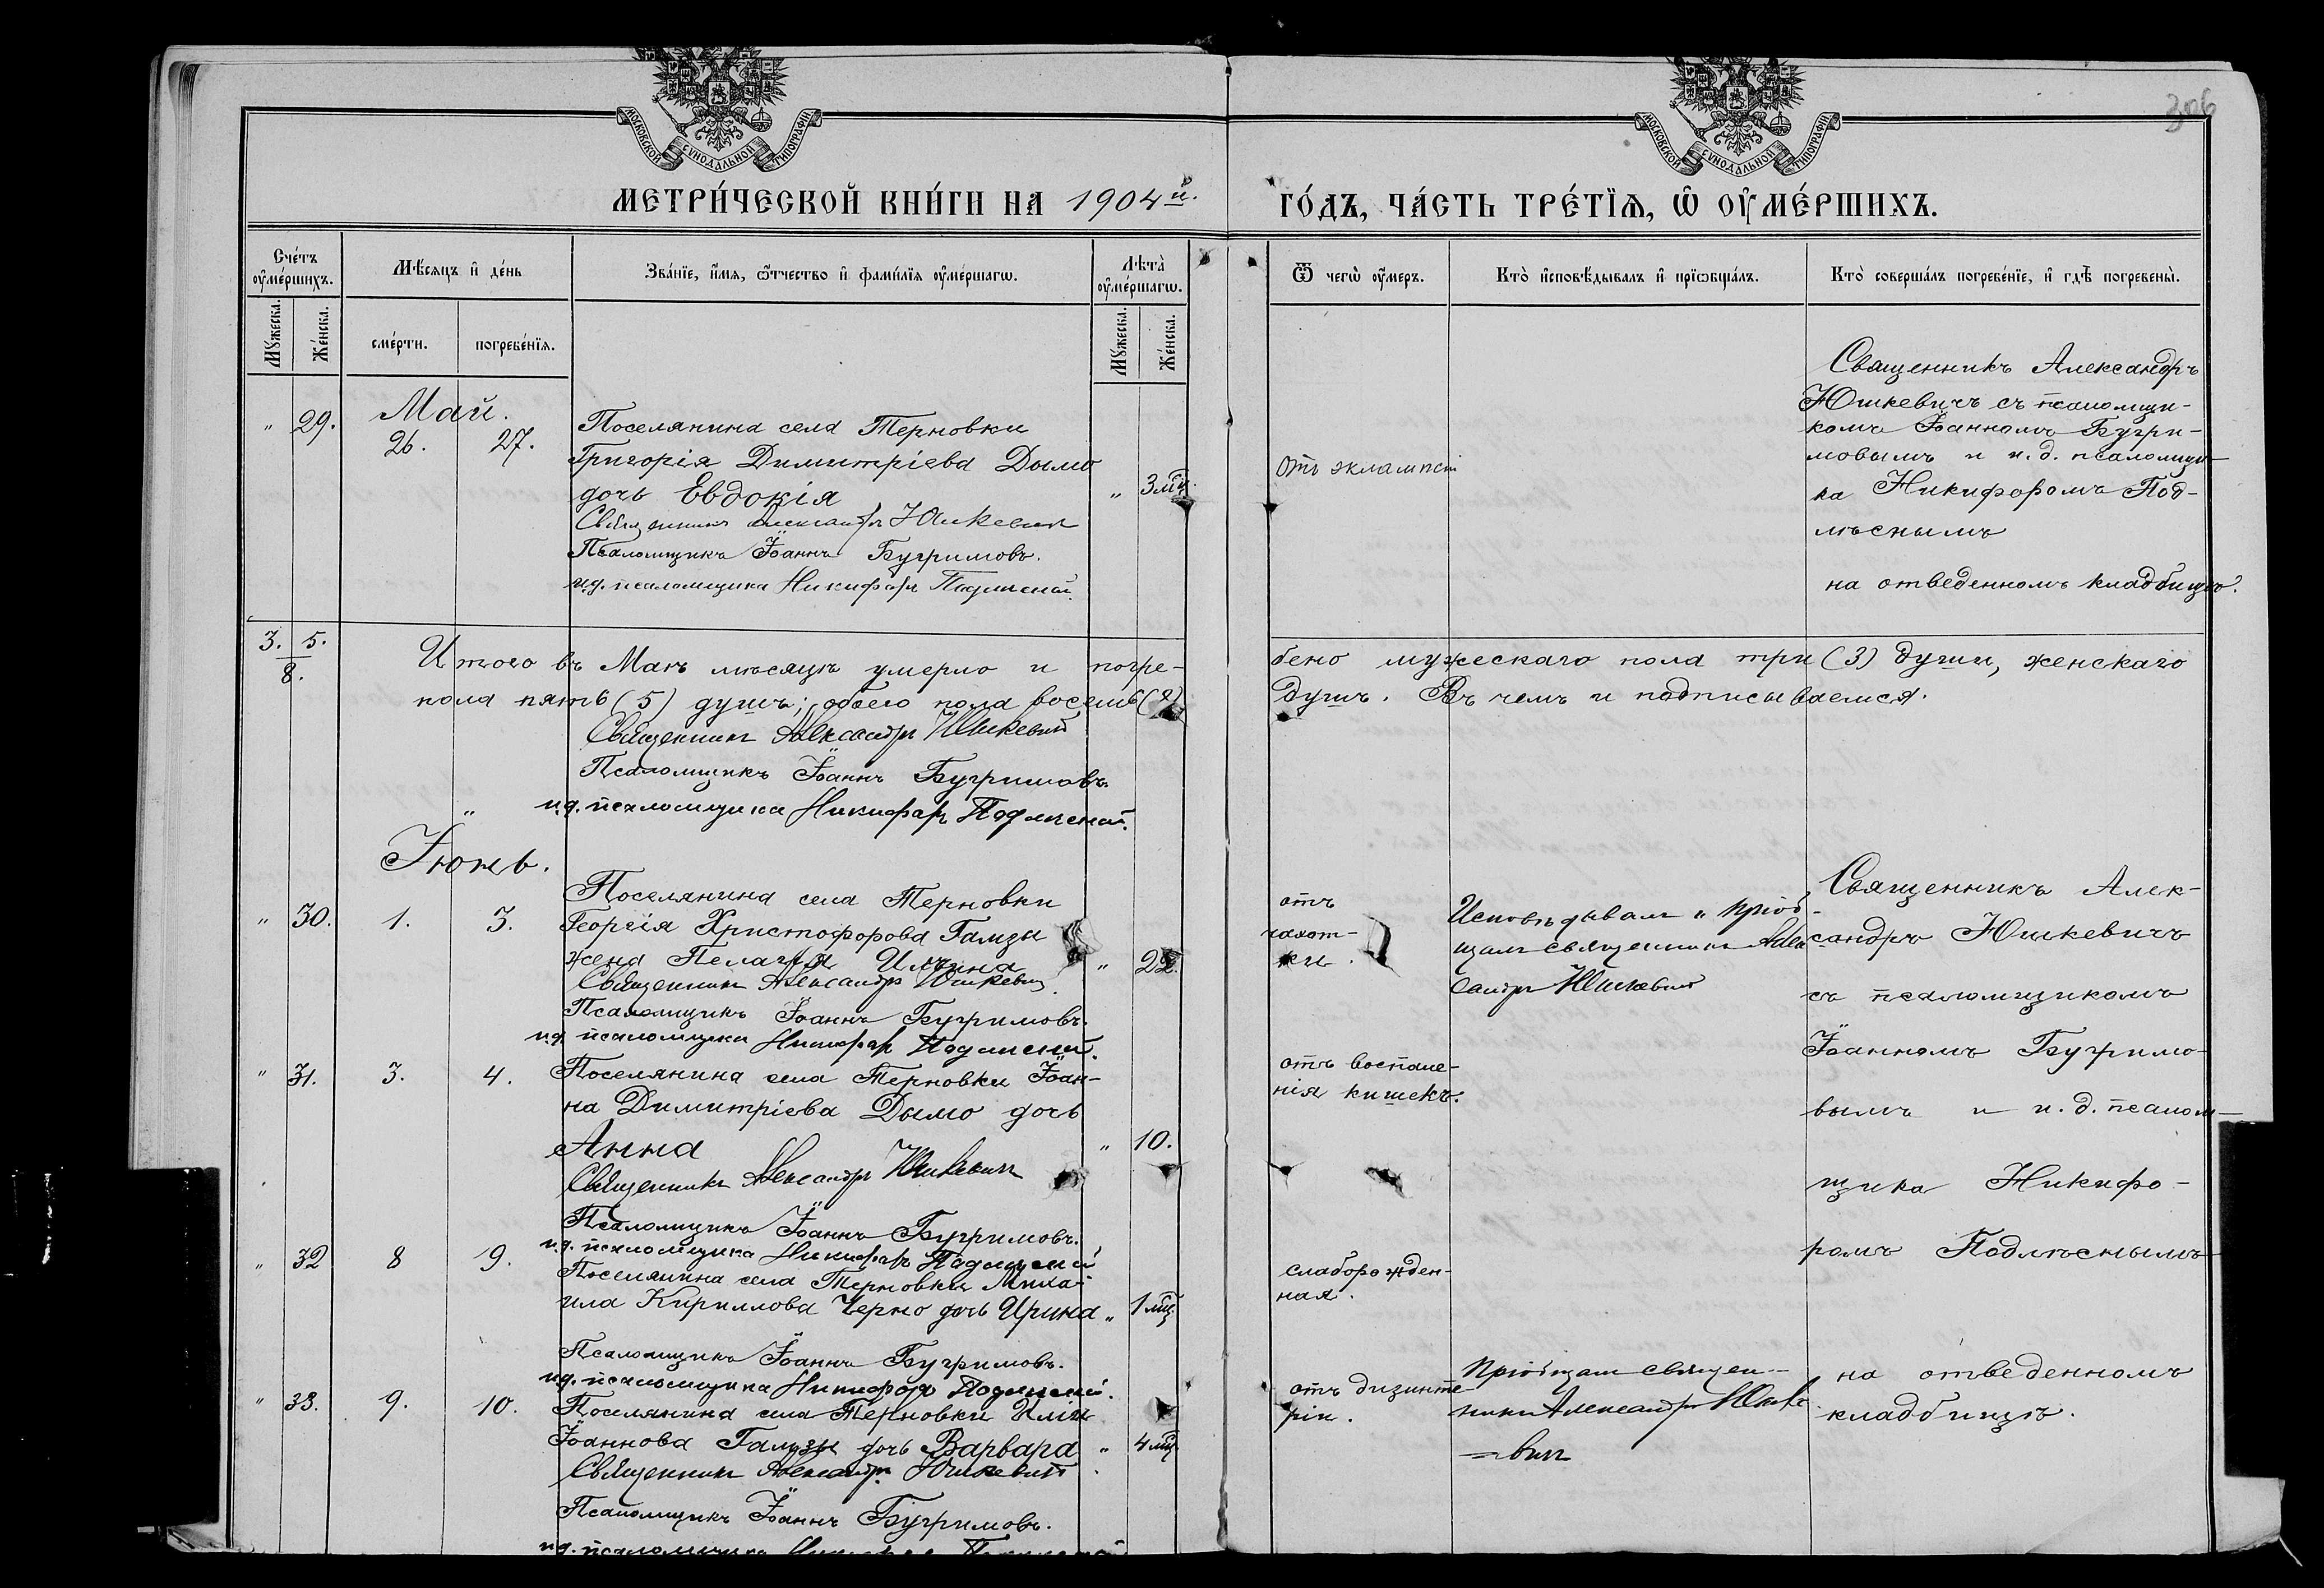 306
МОСКОВСКОЙ СѴНОДАЛЬНОЙ ТИПОГРАФІИ
МОСКОВСКОЙ СѴНОДАЛЬНОЙ ТИПОГРАФІИ
МЕТРИ́ЧЕСКОЙ КНИ́ГИ НА 1904й.
ГО́ДЪ, ЧА́СТЬ ТРЕ́ТЇѦ, Ѿ ОУ҆МЕ́РШИХЪ.
Сче́тъ оу҆ме́ршихъ.
Мꙋжеска.
Же́нска.
Мѣ́сяцъ и҆ де́нь
сме́рти.
погребе́нїѧ.
Зва́нїе, и҆́мѧ, ѻ҆́тчество и҆ фами́лїѧ оу҆ме́ршагѡ.
Лѣта̀ оу҆ме́ршагѡ.
Мꙋжеска.
Же́нска.
Ѿ чегѡ̀ оу҆́меръ.
Кто̀ и҆сповѣ́дывалъ и҆ прїѡбща́лъ.
Кто̀ соверша́лъ погребе́нїе, и҆ гдѣ̀ погребены̀.
Май.
" 29. 26. 27.
Поселянина села Терновки
Григорія Димитріева Дымо
дочь Евдокія
" 3 мц.
Священникъ Александръ Юшкевичъ
Псаломщикъ Іоаннъ Бугримовъ.
и.д. псаломщика Никифоръ Подлѣсной.
отъ эклампсіи
Священникъ Александръ
Юшкевичъ съ псаломщи-
комъ Іоанномъ Бугри-
мовымъ и и.д. псаломщи-
ка Никифоромъ Под-
лѣснымъ
на отведенномъ кладбищѣ.
3. 5.
8.
Итого въ Маѣ мѣсяцѣ умерло и погре-
бено мужескаго пола три (3) души, женскаго
пола пять (5) душъ; обоего пола восемь (8)
душъ. Въ чемъ и подписываемся.
Священникъ Александръ Юшкевичъ
Псаломщикъ Іоаннъ Бугримовъ.
и.д. псаломщика Никифоръ Подлѣсной.
Іюнь.
" 30. 1. 3.
Поселянина села Терновки
Георгія Христофорова Гамзы
жена Пелагія Ильина
" 22.
Священникъ Александръ Юшкевичъ
Псаломщикъ Іоаннъ Бугримовъ.
и.д. псаломщика Никифоръ Подлѣсной.
отъ
чахот-
ки.
Исповѣдывалъ и пріоб-
щалъ священникъ Алек
сандръ Юшкевичъ
Священникъ Алек-
сандръ Юшкевичъ
съ псаломщикомъ
Іоанномъ Бугримо-
вымъ и и.д. псалом-
щика Никифо-
ромъ Подлѣснымъ
" 31. 3. 4.
Поселянина села Терновки Іоан-
на Димитріева Дымо дочь
Анна
" 10.
Священникъ Александръ Юшкевичъ
Псаломщикъ Іоаннъ Бугримовъ.
и.д. псаломщика Никифоръ Подлѣсной
отъ воспале-
нія кишекъ.
" 32 8 9.
Поселянина села Терновки Миха-
ила Кириллова Черно дочь Ирина
" 1 мц
Псаломщикъ Іоаннъ Бугримовъ.
и.д. псаломщика Никифоръ Подлѣсной.
слаборожден-
ная.
" 33. 9. 10.
Поселянина села Терновки Иліи
Іоаннова Гамзы дочь Варвара
" 4 мц
Священникъ Александръ Юшкевичъ
Псаломщикъ Іоаннъ Бугримовъ.
и.д. псаломщика
отъ дизинте-
ріи.
Пріобщалъ священ-
никъ Александръ Юшке
=вичъ
на отведенномъ
кладбищѣ.